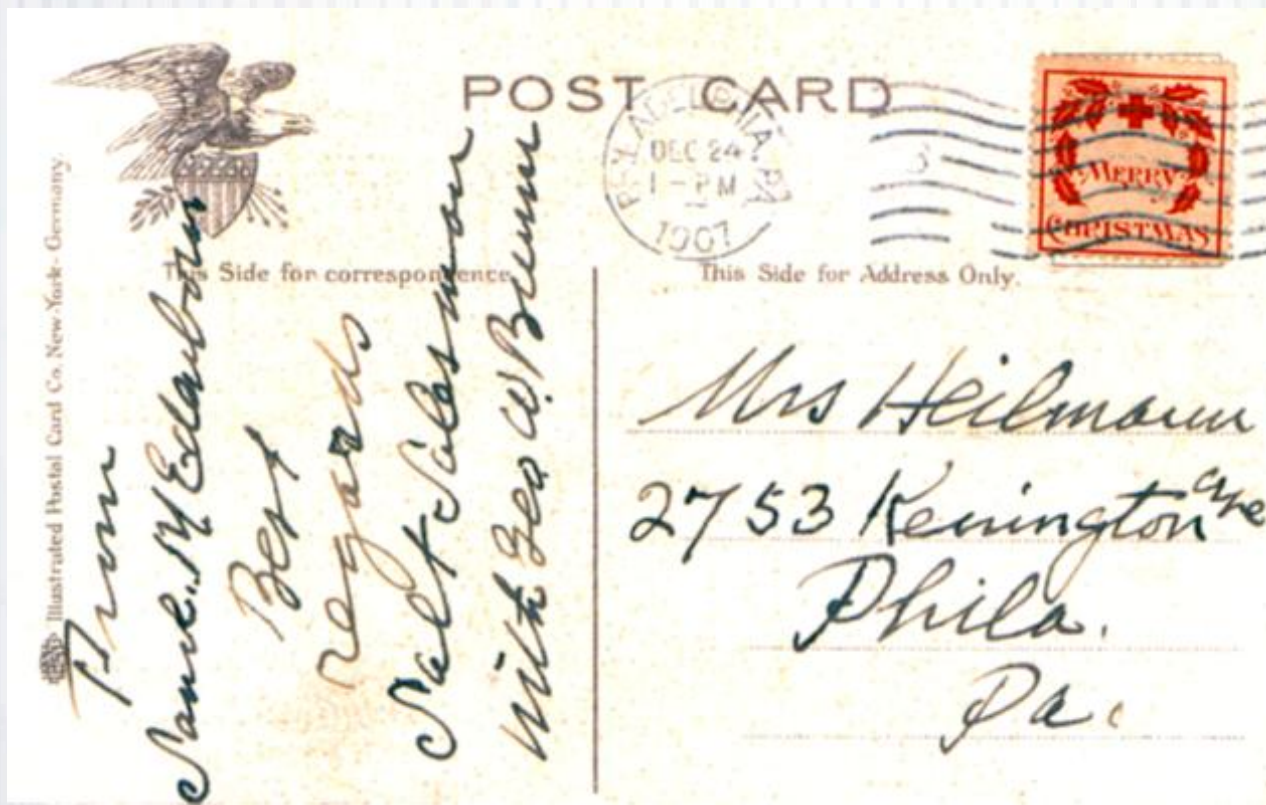 POST CARD
PHILADELPHIA, PA
DEC 24
1 - PM
1907
MERRY
CHRISTMAS
Illustrated Postal Card Co. New-York - Germany.
This Side for correspondence.
This Side for Address Only.
From
Best
regards
Salt Salesman
With Geo W. Bremm
Mrs Heilmann
2753 Kensington Ave
Phila.
Pa.